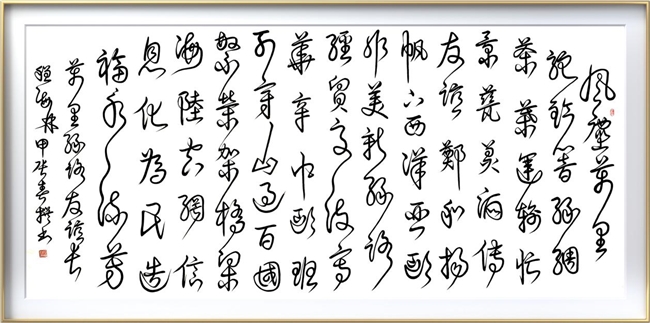 風塵萬里
駝鈴絲綢
茶葉運輸忙
景瓷美酒傳
友誼鄭和揚
帆下西洋亞歐
非美新絲路
經貿交流
華章中歐班
列穿山過百國
繁榮架橋梁
海陸空網信
息化為民造
福永流芳
萬里絲路友誼長
甲辰春書